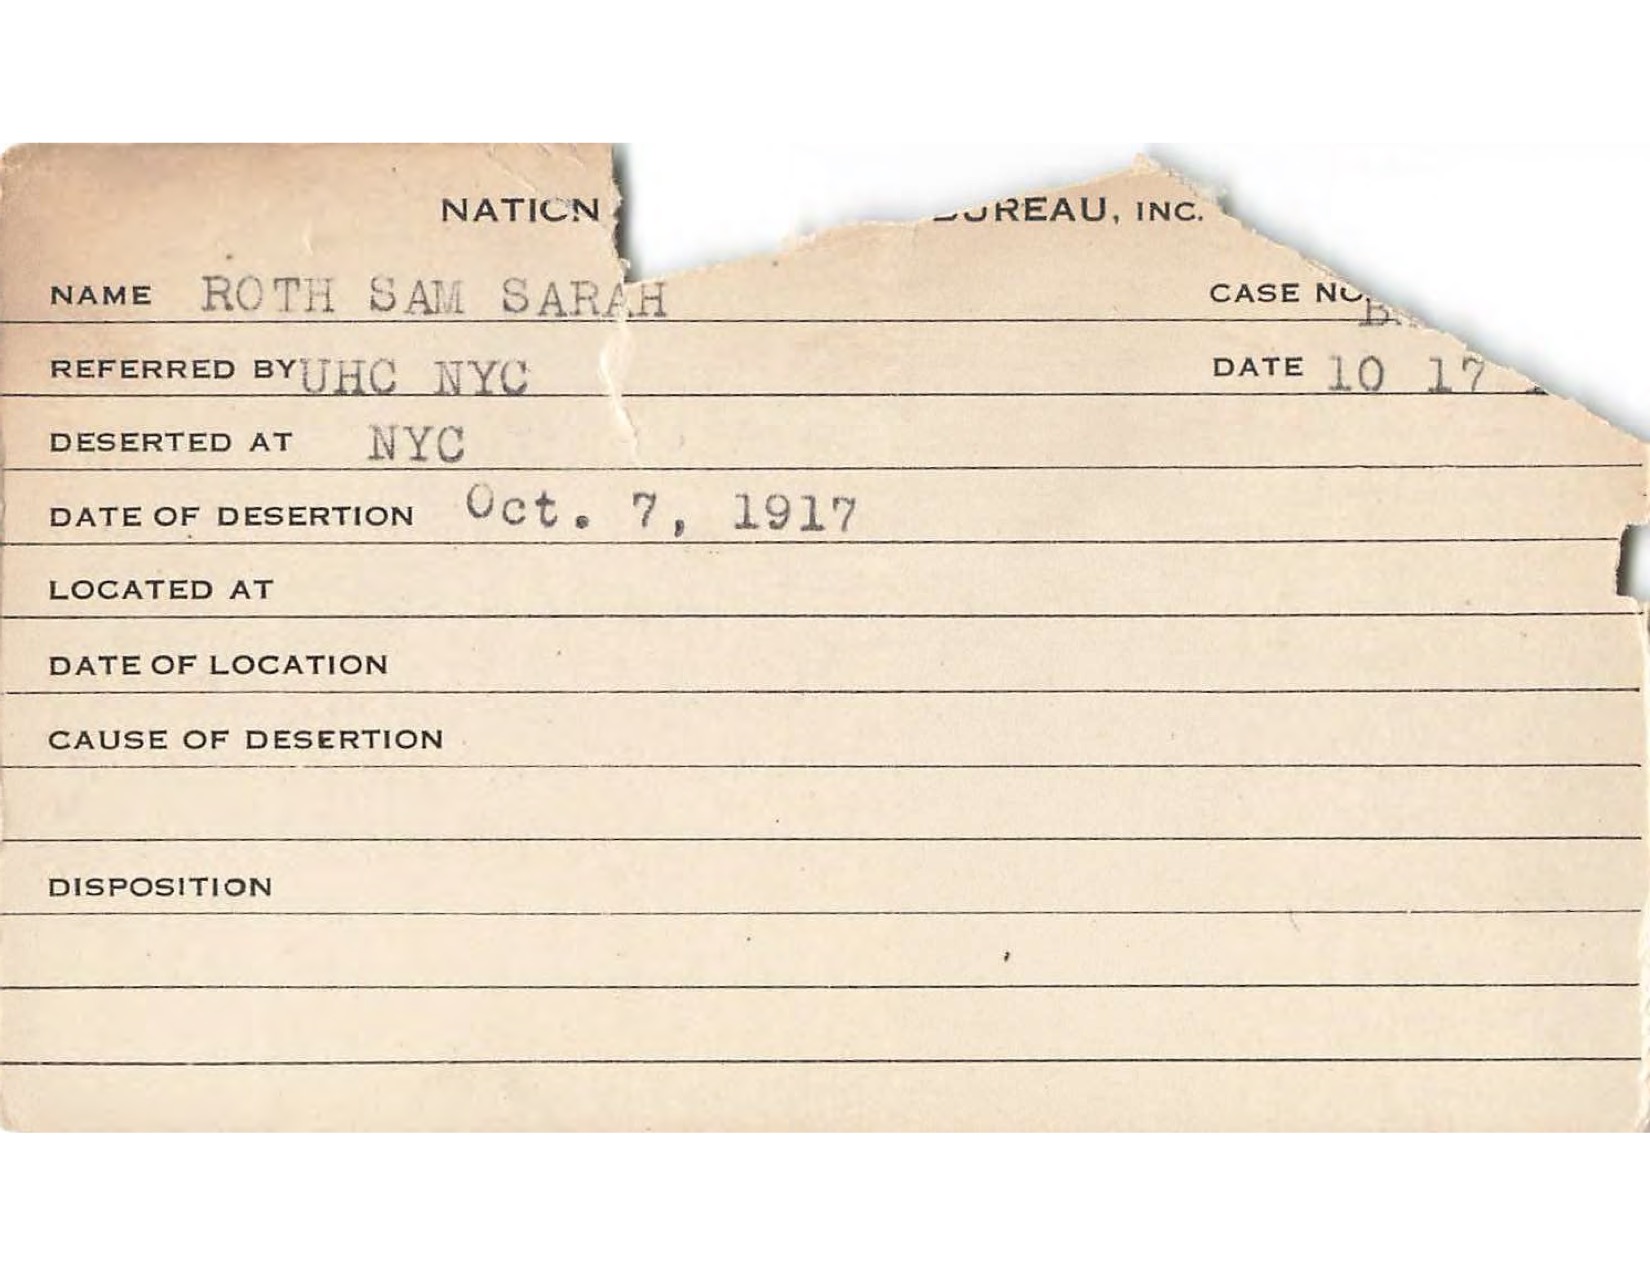 NATION BUREAU, INC.
NAME ROTH SAM SARAH CASE NO.
REFERRED BY UHC NYC DATE 10 17
DESERTED AT NYC
DATE OF DESERTION Oct. 7, 1917
LOCATED AT
DATE OF LOCATION
CAUSE OF DESERTION
DISPOSITION